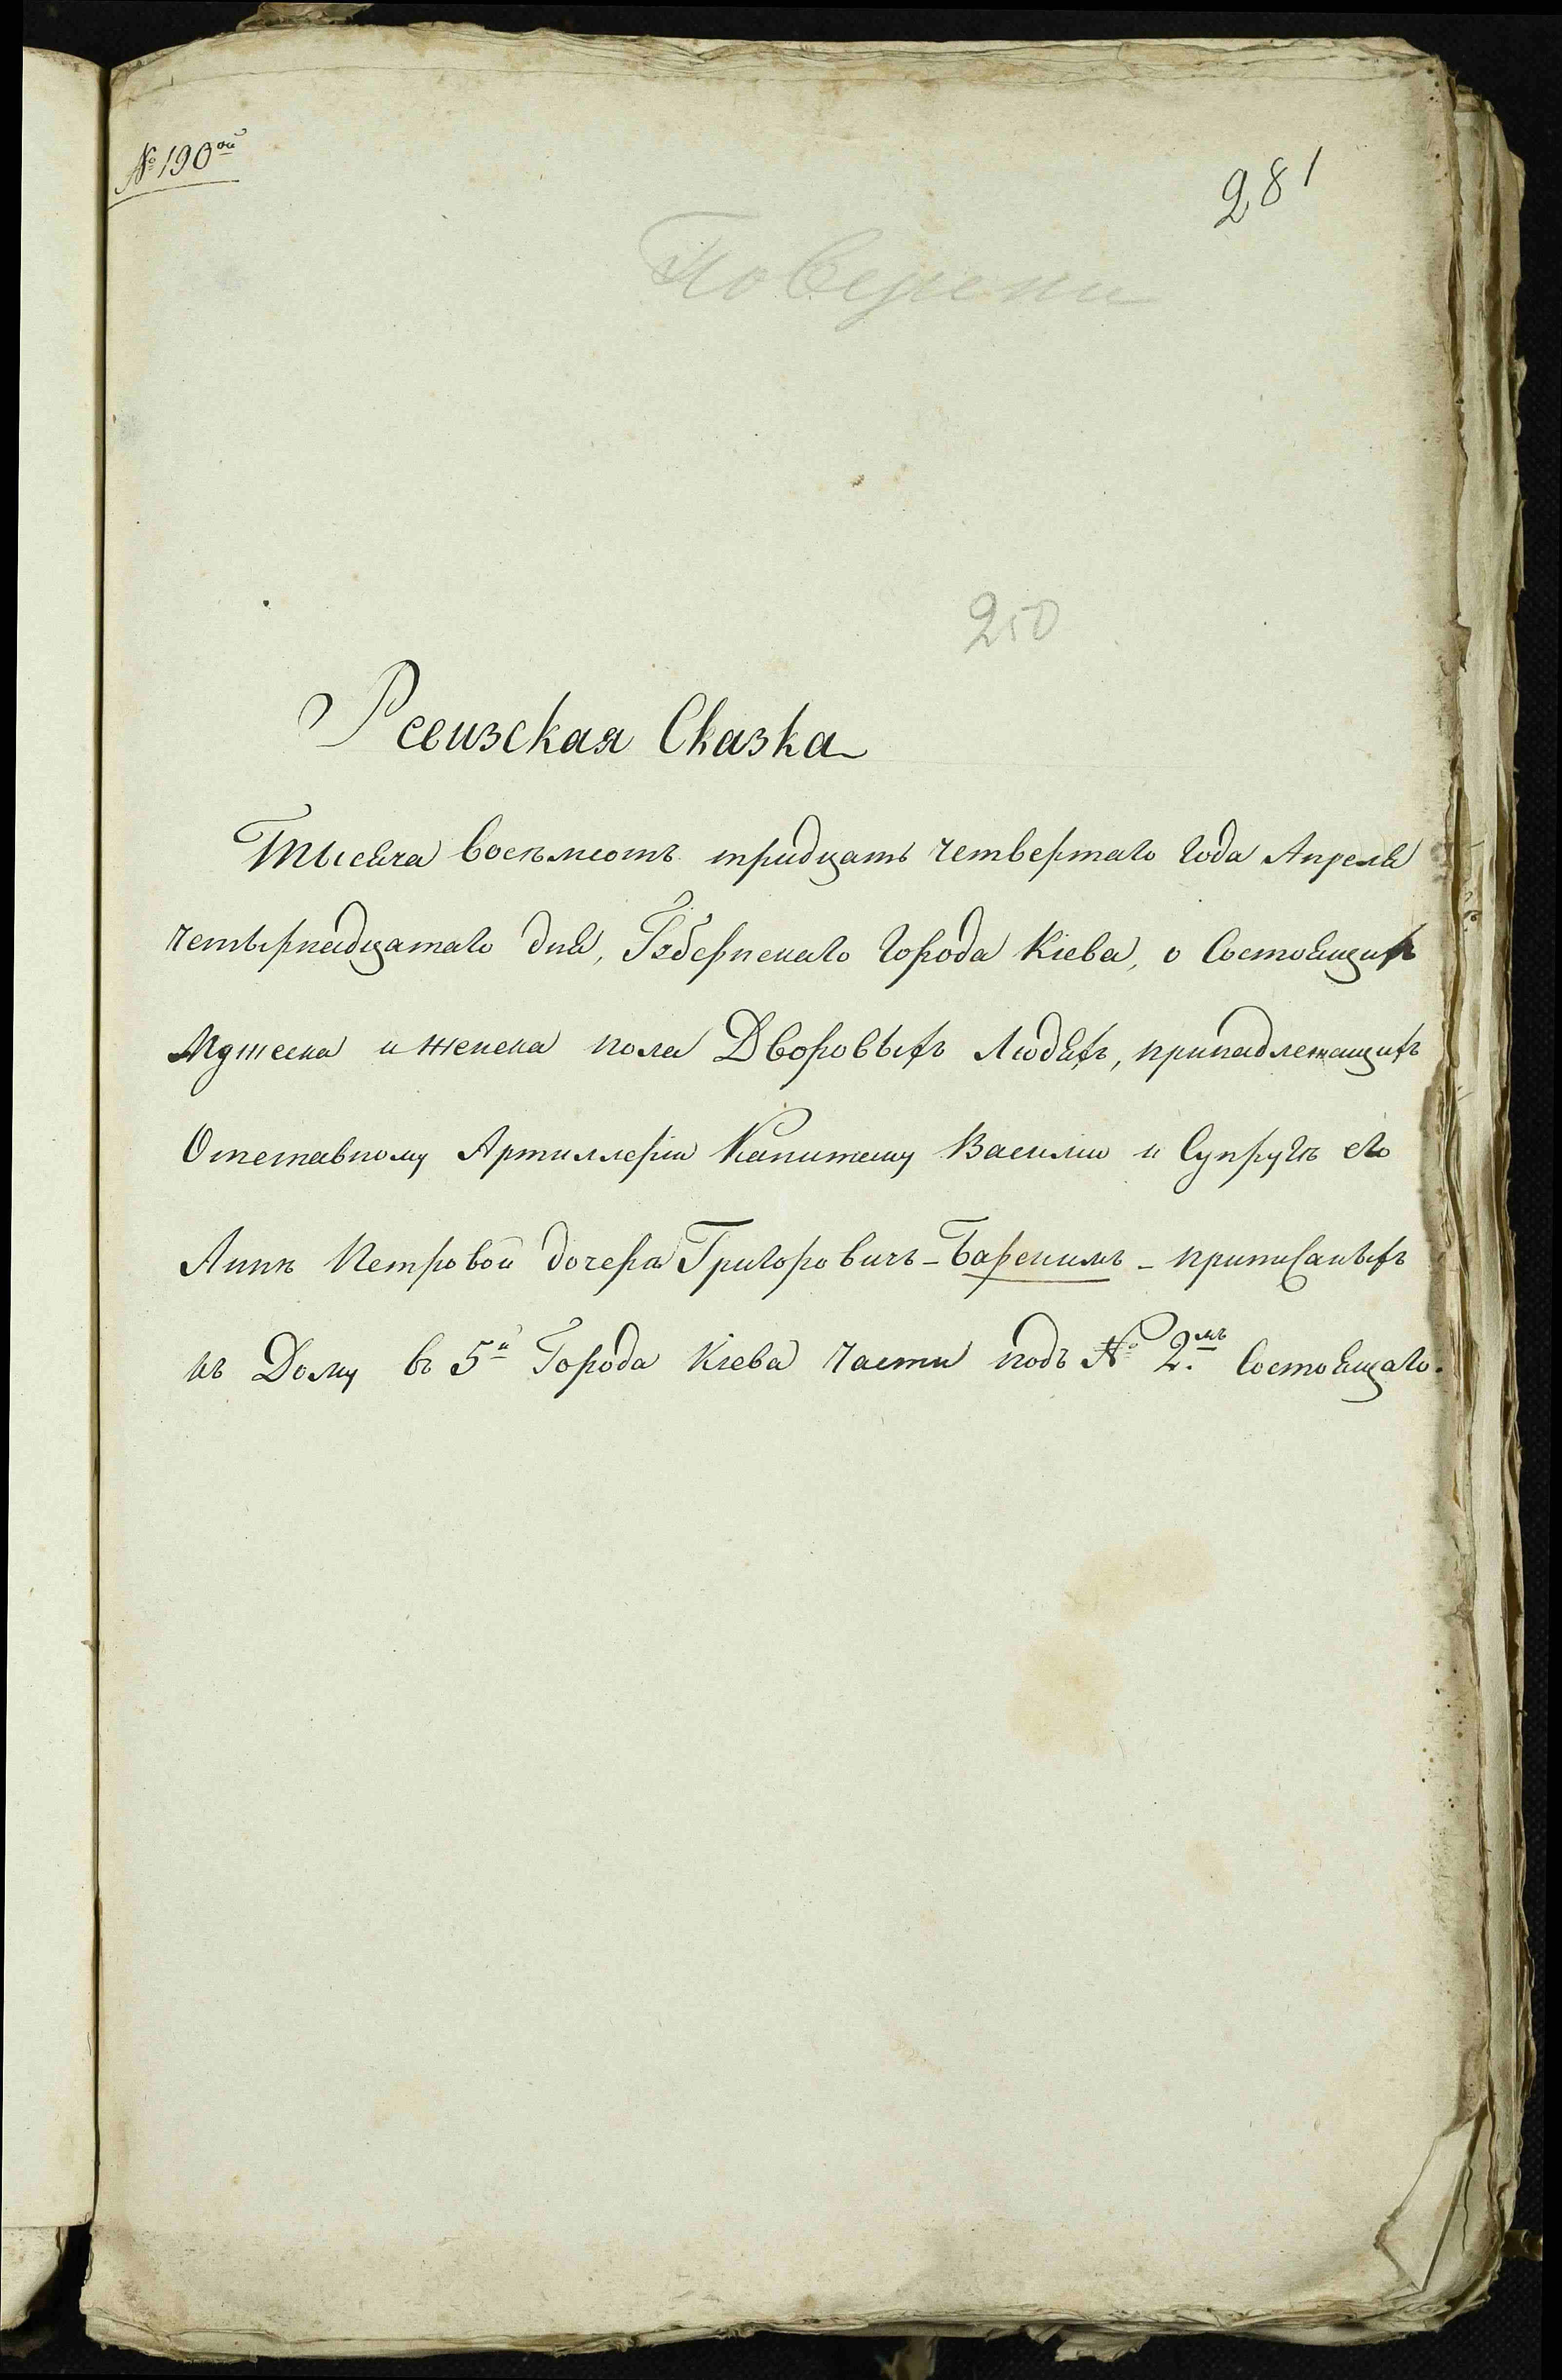 № 190ой
281
Поверены
250
Ревизская Сказка
Тысяча восемьсотъ тридцать четвертаго года Апреля
четырнадцатаго дня, Губернскаго города Кіева, о Состоящихъ
Мужеска и женска пола Дворовыхъ Людяхъ, принадлежащихъ
Отставному Артиллеріи Капитану Василию и Супругѣ его
Аннѣ Петровой дочери Григоровичъ-Барскимъ - приписаныхъ
къ Дому въ 5й Города Кіева части подъ № 2.мъ Состоящаго.